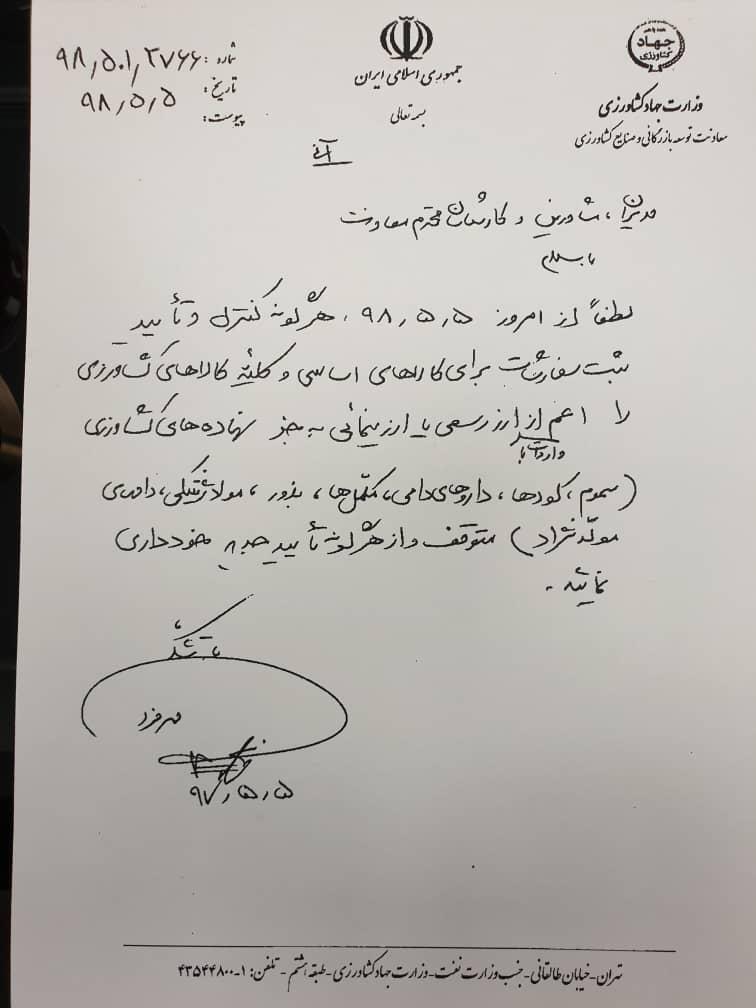 جهاد
کشاورزی
وزارت جهاد کشاورزی
معاونت توسعه بازرگانی و صنایع کشاورزی
جمهوری اسلامی ایران
بسمه تعالی
شماره: ۹۸٫۵۰۱٫۲۷۶۶
تاریخ: ۹۸٫۵٫۵
پیوست:
آنی
مدیران، مشاورین و کارشناسان محترم معاونت
با سلام
لطفاً از امروز ۹۸٫۵٫۵، هرگونه کنترل و تأیید
ثبت سفارشات برای کالاهای اساسی و کلیه کالاهای کشاورزی
را اعم از واردات با ارز رسمی یا ارز نیمائی به جز نهاده های کشاورزی
(سموم، کودها، داروهای دامی، مکمل ها، بذور، مواد ژنتیکی، دامهای
مولد نژاد) متوقف و از هرگونه تأیید جدید خودداری
نمائید.
با تشکر
مهرفرد
۹۷٫۵٫۵
تهران-خیابان طالقانی-جنب وزارت نفت-وزارت جهاد کشاورزی-طبقه هشتم-تلفن: ۱-۴۳۵۴۴۸۰۰